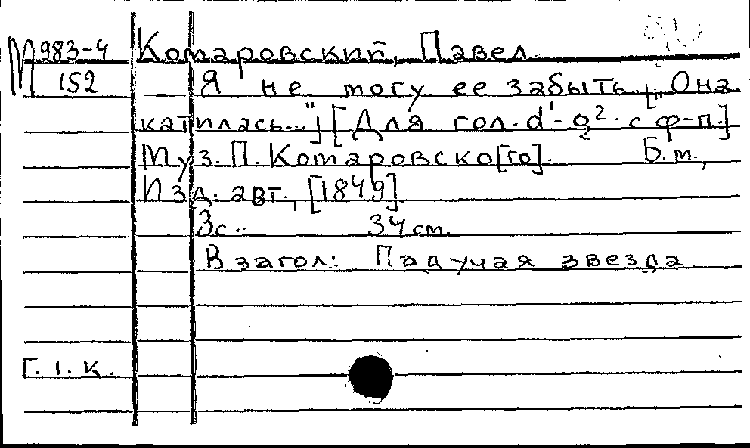 М983-4 Комаровский, Павел
152 Я не могу ее забыть [„Она
катилась..."] [Для гол. d¹-g² с ф-п.]
Муз. П. Комаровско[го]. Б.м.,
Изд. авт., [1849]
3с. 34 см.
В загол: Падучая звезда
Г.I.К.